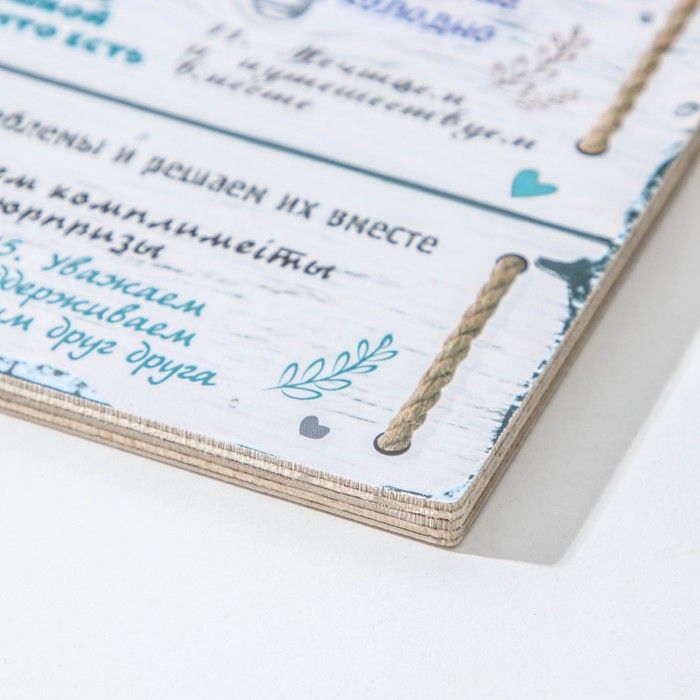 кой
что есть
холодно
11. Мечтаем
и путешествуем
вместе
облемы и решаем их вместе
ем комплименты
юрпризы
5. Уважаем
ддерживаем
им друг друга